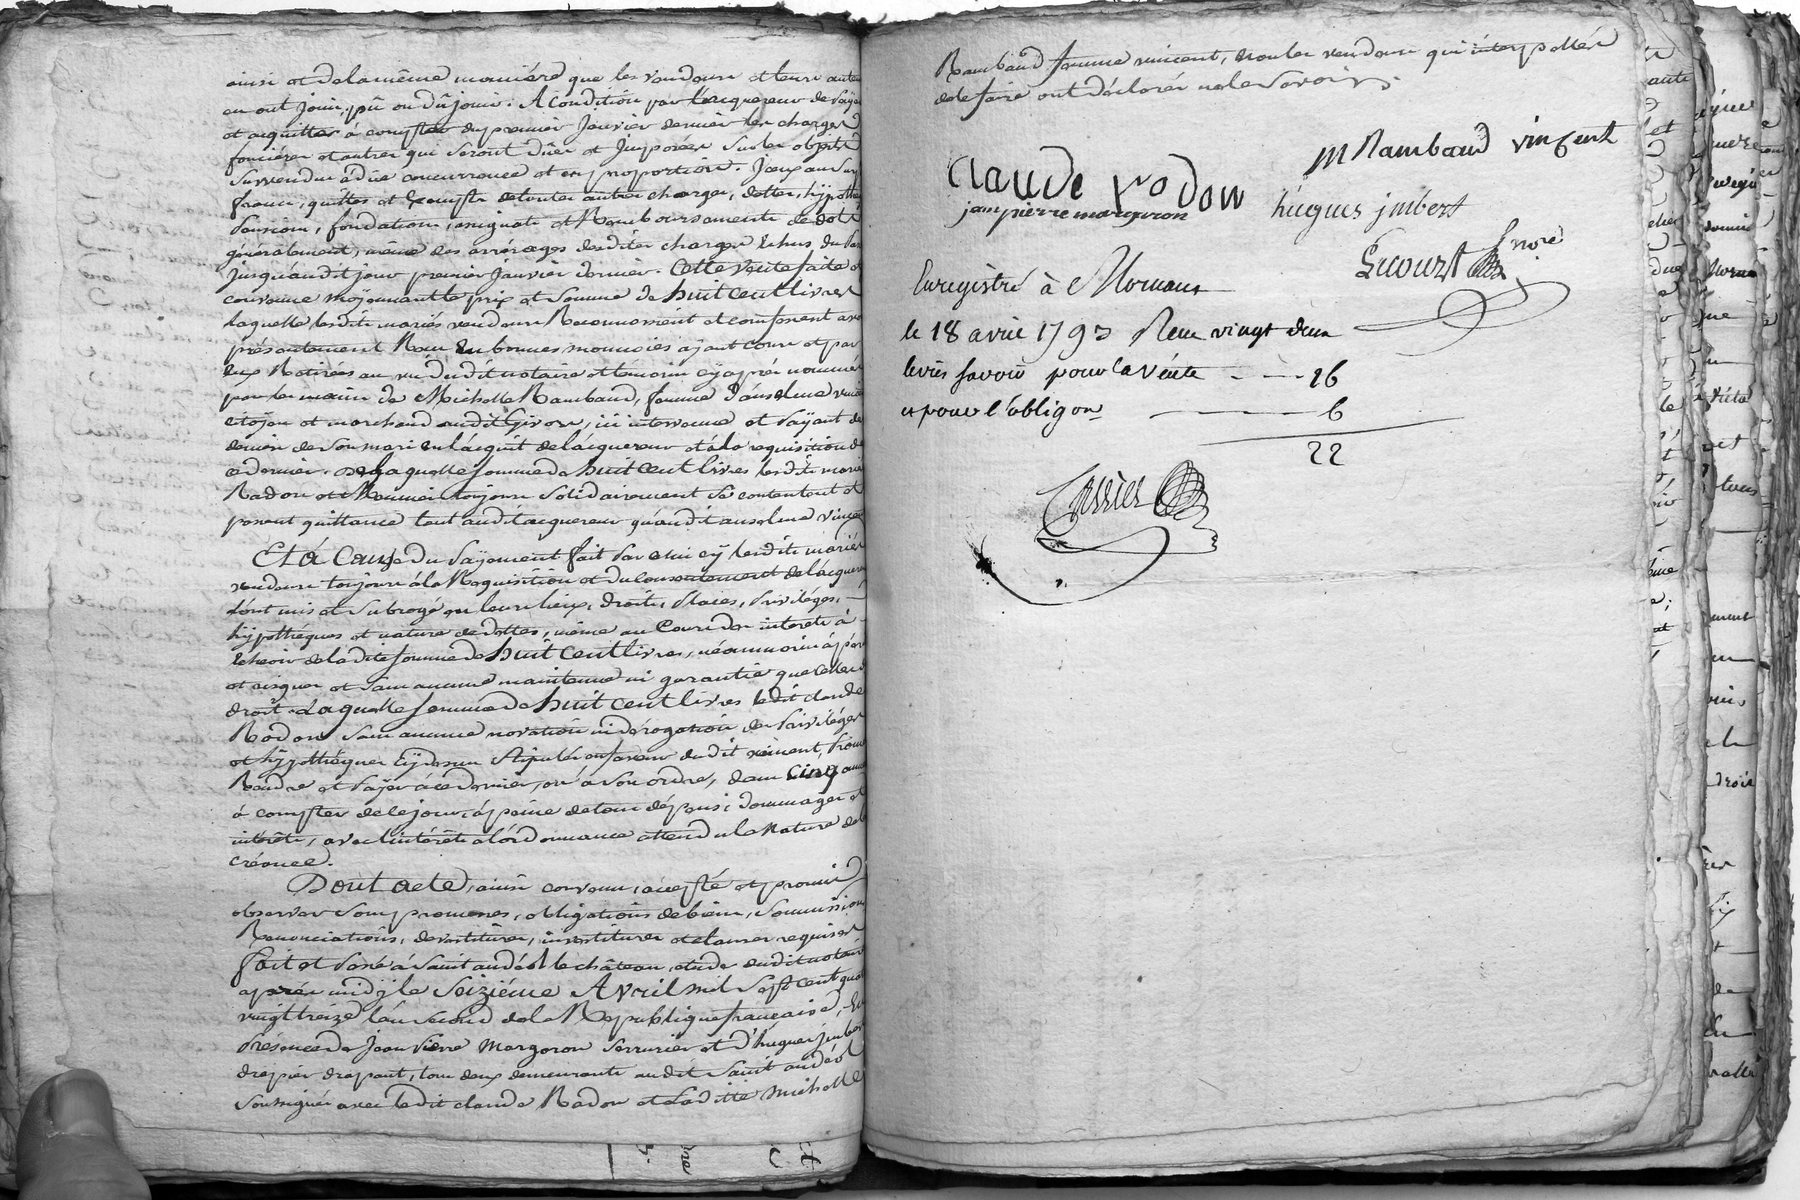 ainsi et de la même maniére que les vendeurs et leurs auteu
en ont joui, pû ou dû jouir. A Condition par l'acquereur de Paÿe
et acquitter à compter du premier Janvier dernier les charges
foncières et autres qui seront dües et Imposées sur les objets
survendus à düe concurrence et en proportion. Jceux au sur
francs, quittes et Exempts de toutes autres charges, dettes, hypothe
Pensions, fondations, assignats et Remboursements de dots
généralement, même des arrérages desdites charges Echus du Pas
jusqu'audit jour premier Janvier dernier. Cette Vente faite et
convenue moÿennant le prix et Somme de huit Cent livres
laquelle lesdits mariés vendeurs Reconnoissent et confessent avo
présentement Reçu En bonnes monnoies aÿant cours et par
Eux Retirées au vû dudit notaire et temoins cÿ après nommés
par les mains de Michelle Rambaud, femme d'anselme vincent
citoÿen et marchand audit Givors, ici intervenue et Paÿant des
deniers de Son mari en l'acquit de l'acquereur et à la requisition de
ce dernier. De laquelle Somme de huit Cent livres lesdits mariés
Radon et Meunier toujours Solidairement Se contentent et
passent quittance tant audit acquereur qu'audit anselme vincent
Et à Cause du Paÿement fait Par celui cÿ lesdits mariés
vendeurs toujours à la Requisition et du consentement de l'acquereur
l'ont mis et Subrogé en leurs lieux, droits, Places, Privilèges,
hÿpothéques et nature de dettes, même au Cours des interets à
Echeoir de ladite Somme de huit Cent livres, néammoins à péril
et risques et Sans aucune maintenue ni garantie que celle de
droit. Laquelle Somme de huit Cent livres ledit claude
Radon Sans aucune novation ni dérogation des Priviléges
et hÿpothéques Cÿ dessus Stipulés en faveur dudit vincent, Promet
Rendre et Paÿer à ce dernier, ou à Son ordre, dans Cinq années
à compter de ce jour, à peine de tous dépens, dommages et
intérêts, avec l'intérêt à l'ordonnance attendu la Nature de la
créance.
Dont acte, ainsi convenu, accepté et promis
observer Sous promesses, obligations de biens, Soumissions
Renonciations, devestitures, investitures et clauses requises
fait et Passé à Saint andéol le château, etude dudit notaire
après midÿ le Seiziéme Avril mil Sept cent quat
vingt treize l'an Second de la République françaisé, En
Présence de Jean Pierre Margeron Serrurier et d'hugues jmbert
drapier drapant, tous deux demeurants audit Saint andéol
Soussignés avec ledit claude Radon et Ladite Michelle
Rambaud femme vincent, non les vendeurs qui interpellés
de le faire ont déclarés ne le Savoir.
M Rambaud vincent
Claude rodon
jean pierre margeron hugues jmbert
Lecourt nore
Enregistré à Mornant
le 18 avril 1793 Reçu vingt deux
livres Savoir pour la vente - - - - 16
et pour l'obligon - - - - 6
22
Carrier